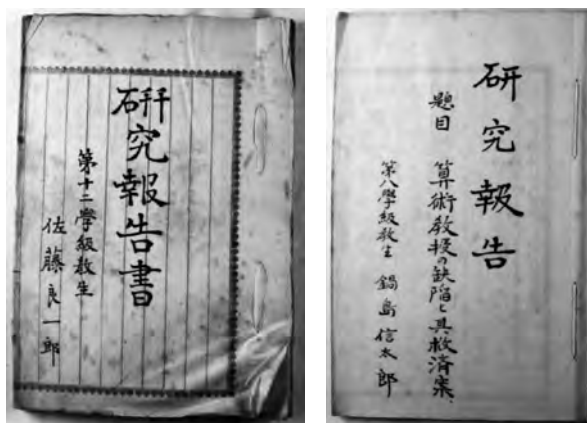 硏究報告書
第十二學級教生
佐藤良一郎
研究報告
題目 算術教授の缺陥と其救済案、
第八學級教生 鍋島信太郎